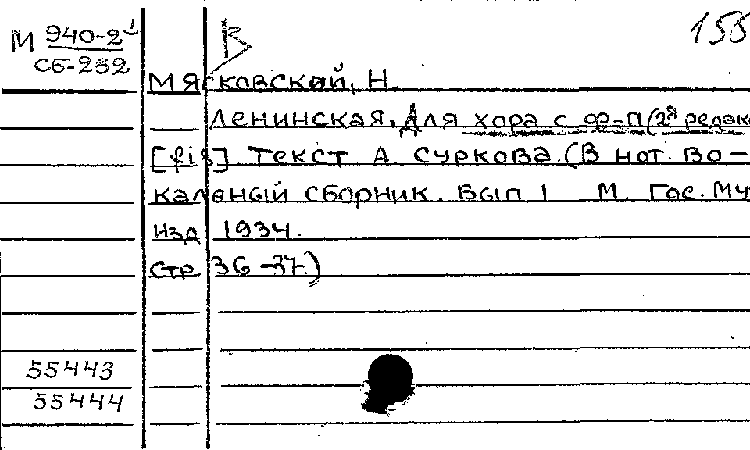 М 940-2¹
СБ-252
В
155
Мясковский, Н.
Ленинская. Для хора с ф-п (2я редак
[fis] Текст А Суркова. (В нот. Во-
кальный сборник. Вып 1 М Гос. Му
изд 1934.
стр 36-37)
55443
55444